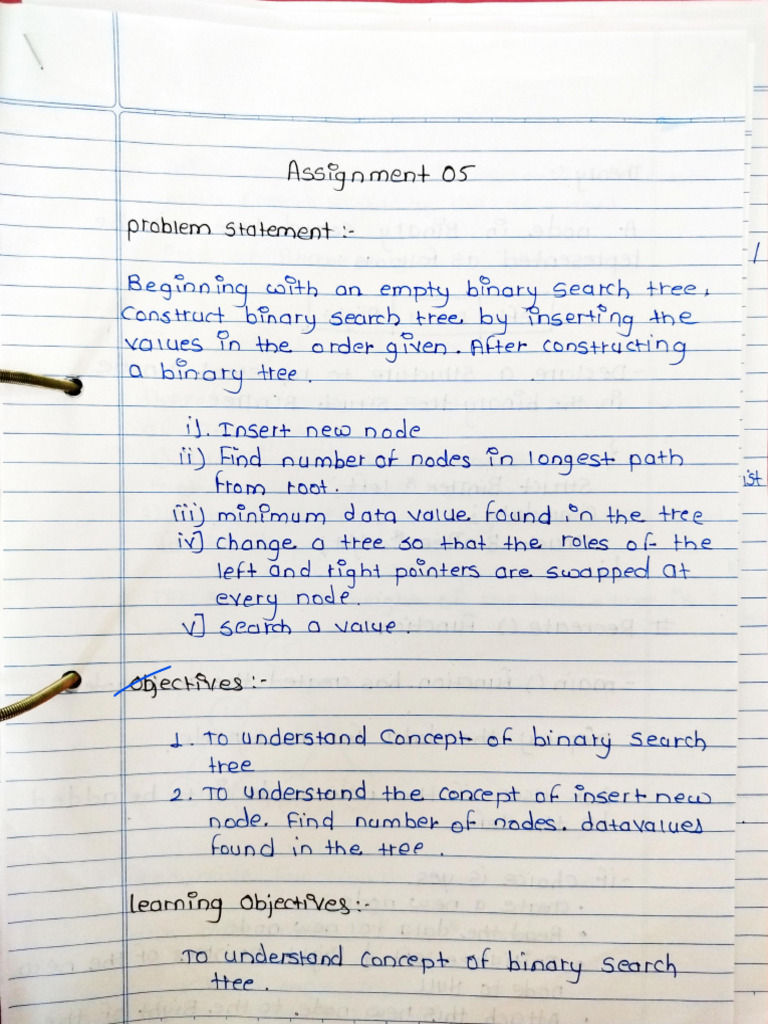 Assignment 05
problem statement :-
Beginning with an empty binary search tree,
Construct binary search tree by inserting the
values in the order given. After constructing
a binary tree.
i). Insert new node
ii) Find number of nodes in longest path
from root.
iii) minimum data value found in the tree
iv] change a tree so that the roles of the
left and right pointers are swapped at
every node.
v] search a value.
Objectives :-
1. To understand Concept of binary search
tree
2. To understand the concept of insert new
node. Find number of nodes. datavalues
found in the tree.
learning Objectives :-
To understand concept of binary search
tree.
ist